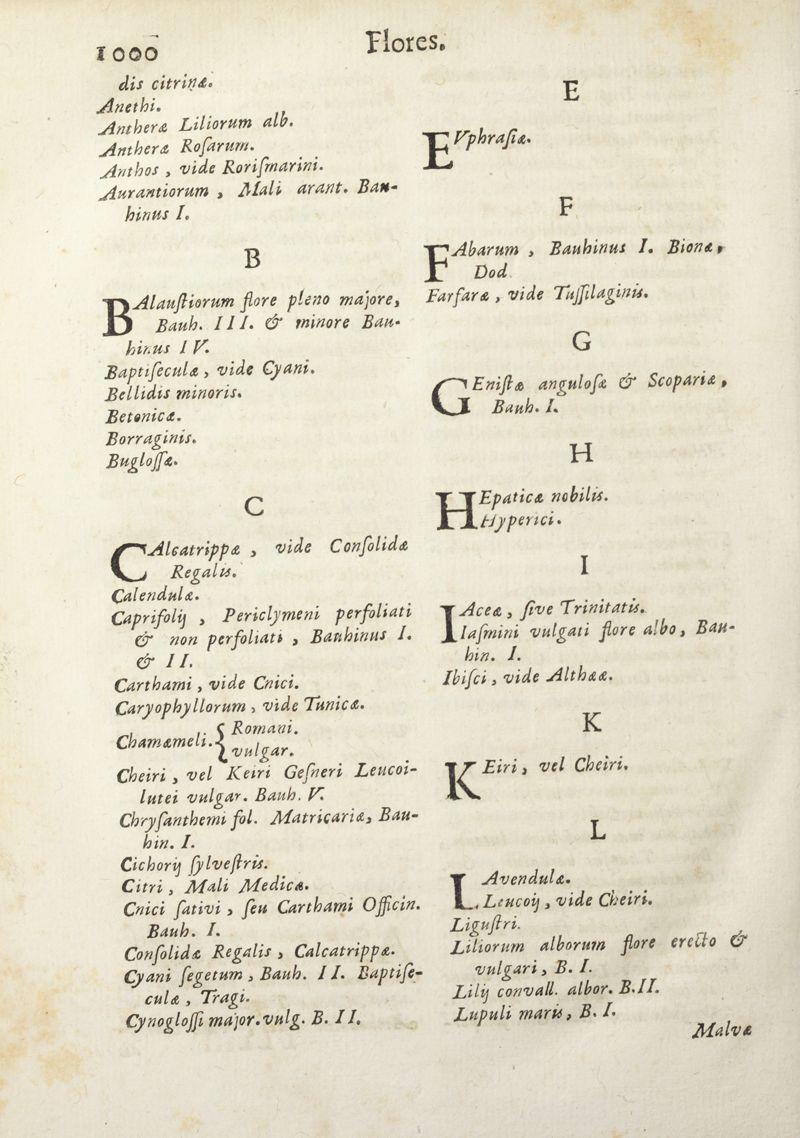 1000
Flores.
dis citrinæ.
Anethi.
Antheræ Liliorum alb.
Antheræ Roſarum.
Anthos, vide Roriſmarini.
Aurantiorum, Mali arant. Bau-
hinus I.
B
BAlauſtiorum flore pleno majore,
Bauh. III. & minore Bau-
hinus IV.
Baptiſeculæ, vide Cyani.
Bellidis minoris.
Betonicæ.
Borraginis.
Bugloſſæ.
C
CAlcatrippæ, vide Conſolidæ
Regalis.
Calendulæ.
Caprifolij, Periclymeni perfoliati
& non perfoliati, Bauhinus I.
& II.
Carthami, vide Cnici.
Caryophyllorum, vide Tunicæ.
Chamæmeli. { Romani.
vulgar.
Cheiri, vel Keiri Geſneri Leucoi-
lutei vulgar. Bauh. V.
Chryſanthemi fol. Matricariæ, Bau-
hin. I.
Cichorij ſylveſtris.
Citri, Mali Medicæ.
Cnici ſativi, ſeu Carthami Officin.
Bauh. I.
Conſolidæ Regalis, Calcatrippæ.
Cyani ſegetum, Bauh. II. Baptiſe-
culæ, Tragi.
Cynogloſſi major. vulg. B. II.
E
EVphraſiæ.
F
FAbarum, Bauhinus I. Bionæ,
Dod.
Farfaræ, vide Tuſſilaginis.
G
GEniſtæ anguloſæ & Scopariæ,
Bauh. I.
H
HEpaticæ nobilis.
Hyperici.
I
IAceæ, ſive Trinitatis.
Iaſmini vulgati flore albo, Bau-
hin. I.
Ibiſci, vide Althææ.
K
KEiri, vel Cheiri.
L
LAvendulæ.
Leucoij, vide Cheiri.
Liguſtri.
Liliorum alborum flore erecto &
vulgari, B. I.
Lilij convall. albor. B. II.
Lupuli maris, B. I.
Malvæ